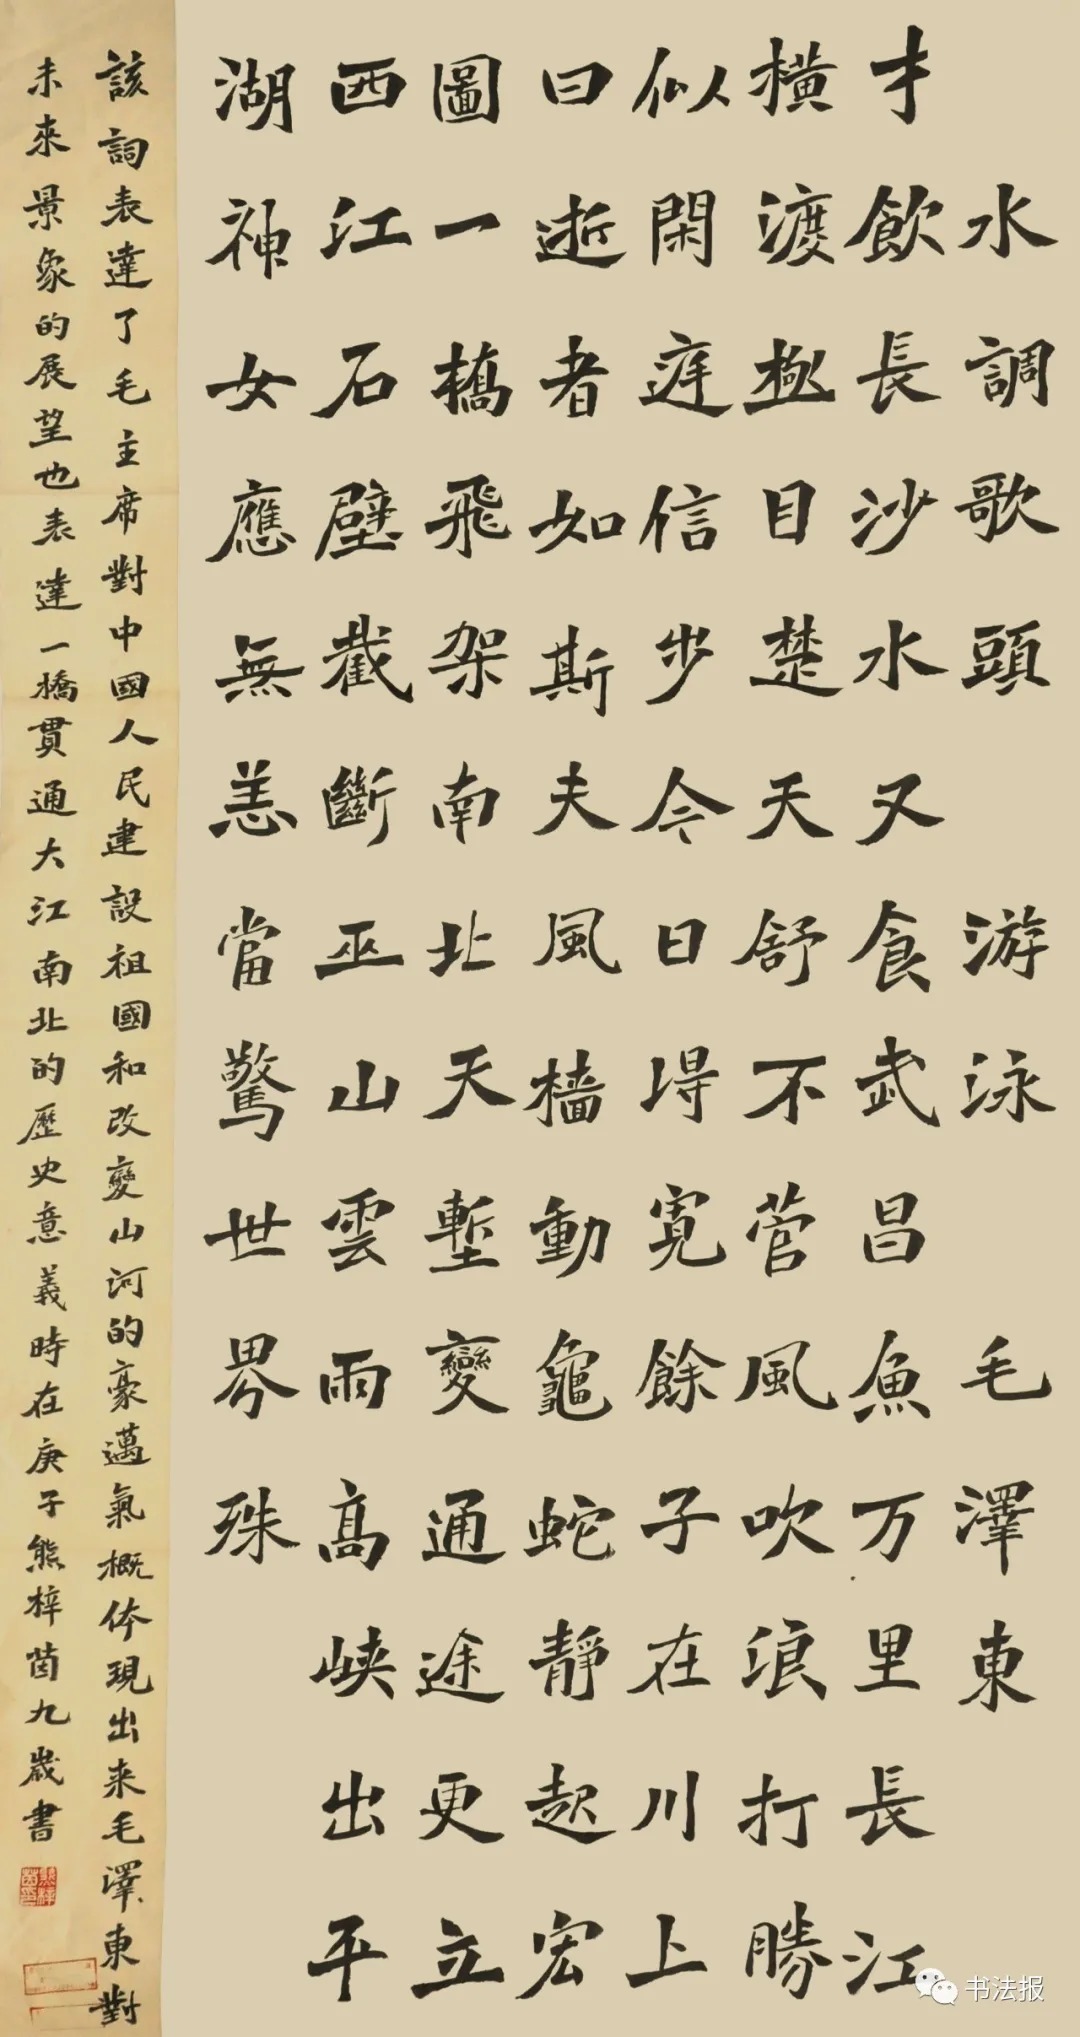 水調歌頭 游泳 毛澤東
才飲長沙水又食武昌魚万里長江
橫渡極目楚天舒不菅風吹浪打勝
似閑庭信步今日得寬餘子在川上
曰逝者如斯夫風檣動龜蛇靜起宏
圖一橋飛架南北天塹變通途更立
西江石壁截斷巫山雲雨高峽出平
湖神女應無恙當驚世界殊
該詞表達了毛主席對中國人民建設祖國和改變山河的豪邁氣概体現出来毛澤東對
未來景象的展望也表達一橋貫通大江南北的歷史意義時在庚子熊梓茵九歲書
书法报